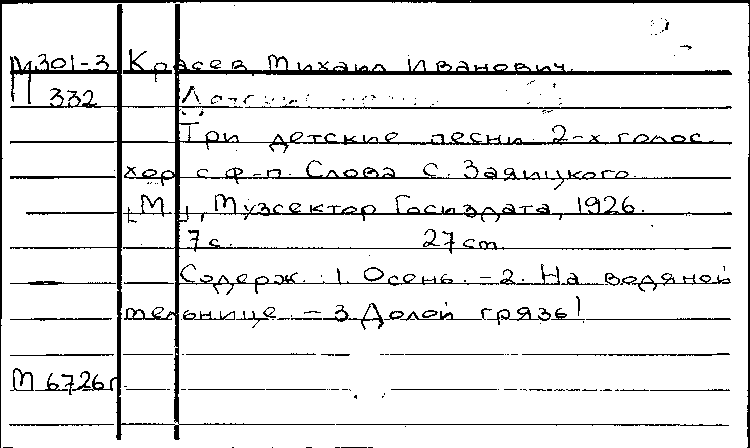 М301-3 Красев, Михаил Иванович.
П 332
Три детские песни 2-х голос.
хор с ф-п. Слова С. Заяицкого.
[М.], Музсектор Госиздата, 1926.
7 с. 27 cm.
Содерж.: 1. Осень. - 2. На водяной
мельнице. - 3. Долой грязь!
М 6726г